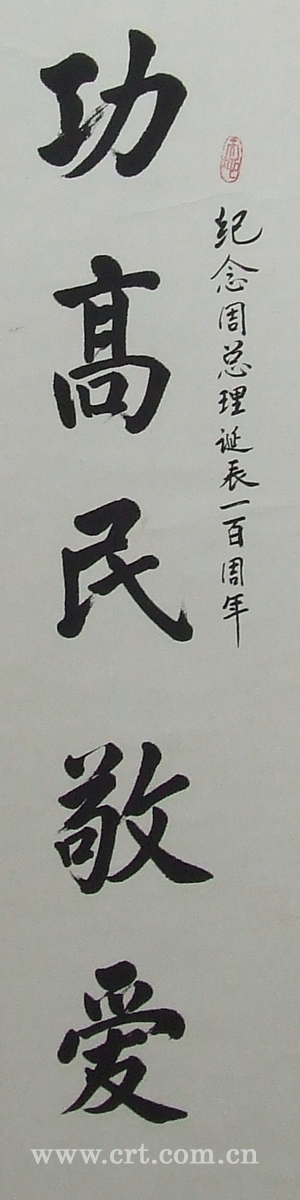 纪念周总理诞辰一百周年
功髙民敬爱
www.crt.com.cn